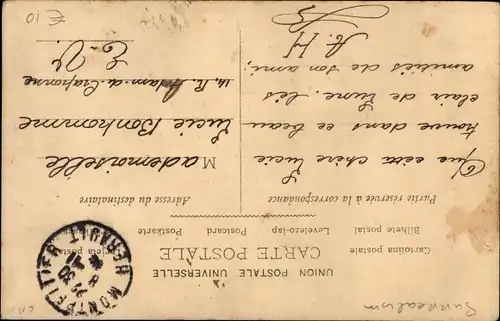 UNION POSTALE UNIVERSELLE
CARTE POSTALE
Cartolina postale
Bilhete postal
Levelezo-lap
Postcard
Postkarte
Tarjeta postal
Partie réservée à la correspondance
Adresse du destinataire
Que cette chère Lucie
trouve dans ce beau
clair de Lune. les
amitiés de son ami,
A. H
Mademoiselle
Lucie Bonhomme
14. R. Adam. de Craponne
E. V.
MONTPELLIER HERAULT
Surrealism
£10